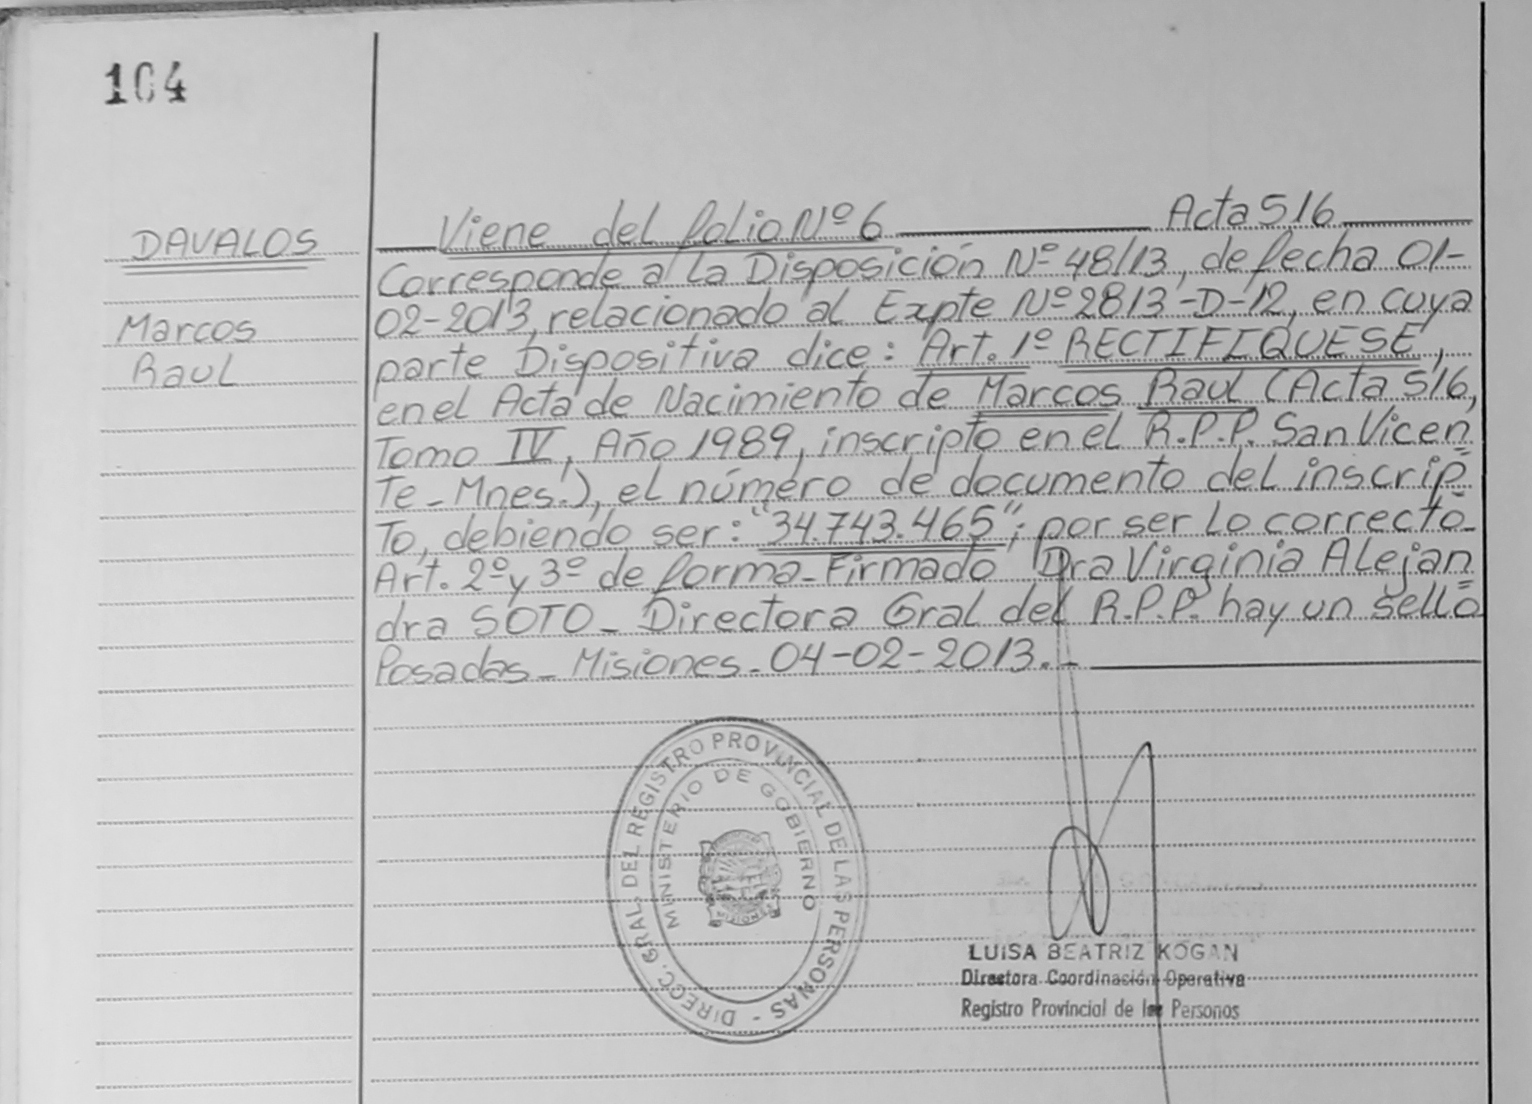 104
DAVALOS
Marcos
Raul
Viene del folio Nº 6 Acta 516
Corresponde a La Disposición Nº 48/13, de fecha 01-
02-2013, relacionado al Expte Nº 2813-D-12, en cuya
parte Dispositiva dice: Art. 1º RECTIFIQUESE,
en el Acta de Nacimiento de Marcos Raul (Acta 516,
Tomo IV, Año 1989, inscripto en el R.P.P. San Vicen
Te - Mnes.), el número de documento del inscrip
To, debiendo ser: "34.743.465"; por ser Lo correcto-
Art. 2º y 3º de forma - Firmado Dra Virginia Alejan
dra SOTO - Directora Gral del R.P.P. hay un sello
Posadas - Misiones - 04-02-2013.-
DIRECC. GRAL. DEL REGISTRO PROVINCIAL DE LAS PERSONAS -
MINISTERIO DE GOBIERNO
MISIONES
LUISA BEATRIZ KOGAN
Directora Coordinación Operativa
Registro Provincial de las Personas